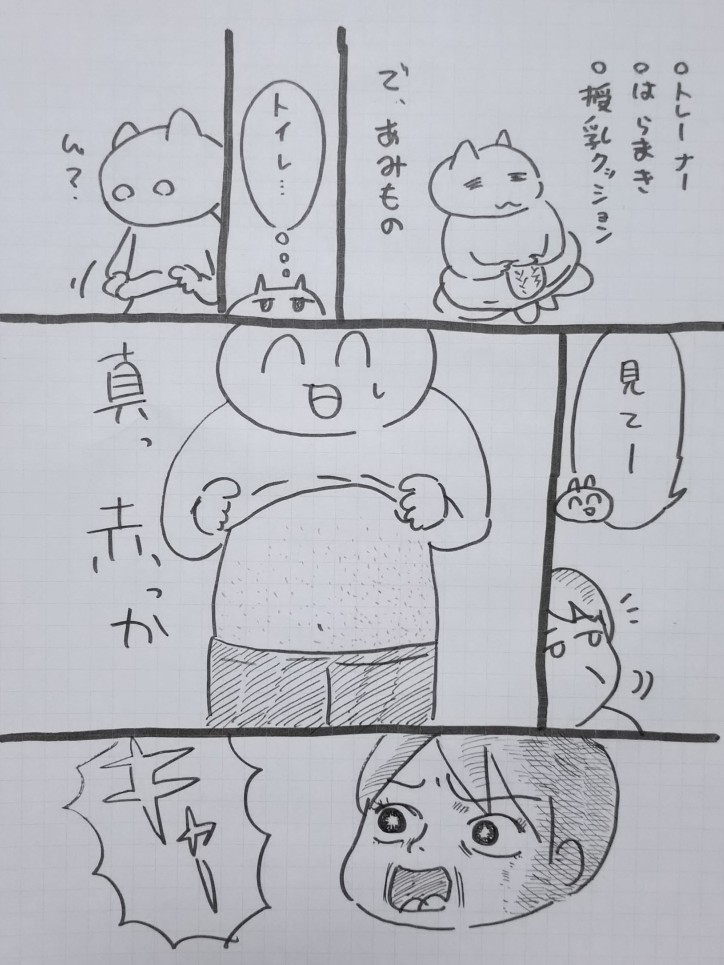 ○トレーナー
○はらまき
○授乳クッション
で、あみもの
トイレ…
ん?
見てー
真っ赤っか
ギャー